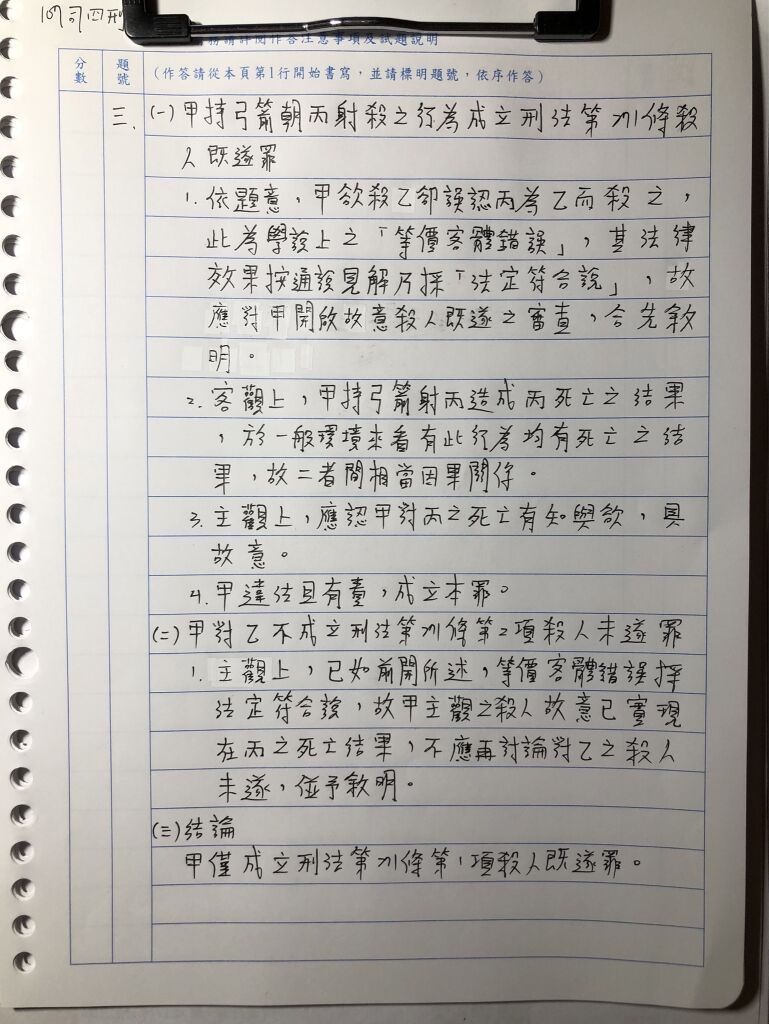 107司四刑
務請詳閱作答注意事項及試題說明
分數
題號
(作答請從本頁第1行開始書寫，並請標明題號，依序作答)
三、(一)甲持弓箭朝丙射殺之行為成立刑法第271條殺
人既遂罪
1.依題意，甲欲殺乙卻誤認丙為乙而殺之，
此為學說上之「等價客體錯誤」，其法律
效果按通說見解乃採「法定符合說」，故
應對甲開啟故意殺人既遂之審查，合先敘
明。
2.客觀上，甲持弓箭射丙造成丙死亡之結果
，於一般環境來看有此行為均有死亡之結
果，故二者間相當因果關係。
3.主觀上，應認甲對丙之死亡有知與欲，具
故意。
4.甲違法且有責，成立本罪。
(二)甲對乙不成立刑法第271條第2項殺人未遂罪
1.主觀上，已如前開所述，等價客體錯誤採
法定符合說，故甲主觀之殺人故意已實現
在丙之死亡結果，不應再討論對乙之殺人
未遂，併予敘明。
(三)結論
甲僅成立刑法第271條第1項殺人既遂罪。